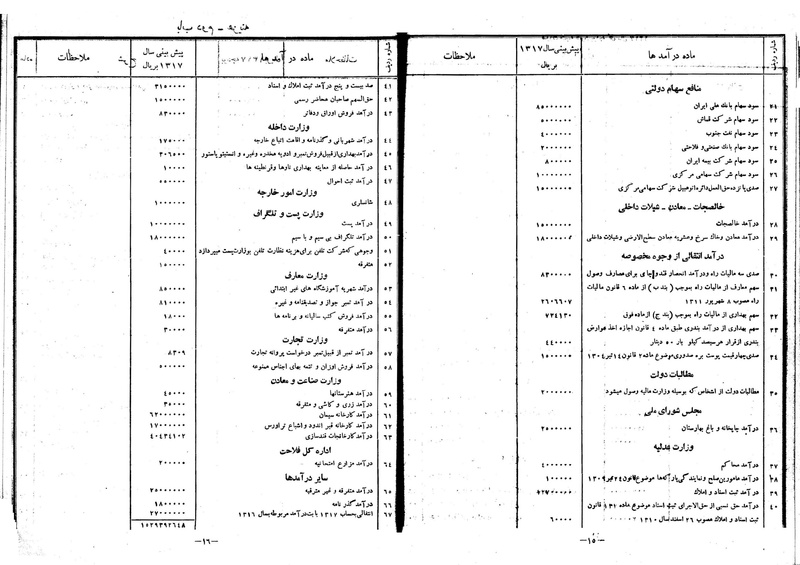 شماره ردیف
ماده درآمد ها
پیش بینی سال ۱۳۱۷ بریال
ملاحظات
منافع سهام دولتی
۲۱ سود سهام بانک ملی ایران ۸۵۰۰۰۰۰۰
۲۲ سود سهام شرکت قماش ۵۰۰۰۰۰۰
۲۳ سود سهام نفت جنوب ۴۰۰۰۰۰۰
۲۴ سود سهام بانک صنعتی و فلاحتی ۲۰۰۰۰۰۰
۲۵ سود سهام شرکت بیمه ایران ۸۰۰۰۰۰
۲۶ سود سهام شرکت سهامی مرکزی ۱۰۰۰۰۰۰۰
۲۷ صدی پانزده حق العمل دائره اتوموبیل شرکت سهامی مرکزی ۱۵۰۰۰۰۰۵
خالصجات ـ معادن ـ شیلات داخلی
۲۸ درآمد خالصجات ۱۵۰۰۰۰۰۰
۲۹ درآمد معادن وخاک سرخ وعشریه معادن سطح الارضی وشیلات داخلی ۱۸۰۰۰۰۰۰
درآمد انتقالی از وجوه مخصوصه
۳۰ صدی سه مالیات راه ودرآمد انحصار قندوچای برای مصارف وصول ۸۳۰۰۰۰۰
۳۱ سهم معارف از مالیات راه بموجب ( بند ب ) از ماده ۶ قانون مالیات
راه مصوب ۸ شهریور ۱۳۱۱ ۲۶۰۶۶۰۷
۳۲ سهم بهداری از مالیات راه بموجب (بند ج) از ماده فوق ۷۳۴۱۳۰
۳۳ سهم بهداری از درآمد بندری طبق ماده ۴ قانون اجازه اخذ عوارض
بندری از قرار هرسیصد کیلو بار ۵۰ دینار ۴۴۰۰۰۰
۳۴ صدی چهار قیمت پوست بره صدوری موضوع ماده ۲ قانون ۱۴ تیر ۱۳۰۴ ۱۰۰۰۰۰۰
مطالبات دولت
۳۵ مطالبات دولت از اشخاص که بوسیله وزارت مالیه وصول میشود ۲۰۰۰۰۰۰
مجلس شورای ملی
۳۶ درآمد چاپخانه و باغ بهارستان ۲۵۰۰۰۰۰
وزارت عدلیه
۳۷ درآمد محاکم ۴۰۰۰۰۰۰
۳۸ درآمد مامورین صلح و نمایندگی
۱۰۰۰۰۰
۳۹ درآمد ثبت اسناد و املاک
۴۰ درآمد حق نسبی از حق الاجرای ثبت اسناد موضوع ماده ۱۳۱ قانون
ثبت اسناد و املاک مصوب ۲۶ اسفند سال ۱۳۱۰ ۶۰۰۰۰
ـ۱۵ـ
شماره ردیف
ماده در آمدها
پیش بینی سال ۱۳۱۷ بریال
ملاحظات
۴۱ صد بیست و پنج درآمد ثبت املاک و اسناد ۳۱۵۰۰۰۰
۴۲ حق السهم صاحبان محاضر رسمی ۱۵۰۰۰۰۰
۴۳ درآمد فروش اوراق ودفاتر ۸۳۰۰۰۰
وزارت داخله
۴۴ درآمد شهربانی و گذرنامه و اقامت اتباع خارجه ۱۷۵۰۰۰
۴۵ درآمد بهداری از قبیل فروش نمبر و ادویه مخدره وغیره و انستیتو پاستور ۳۰۶۵۰۰۰
۴۶ درآمد حاصله از معاینه بهداری ناوها و قرنطینه ها ۱۰۰۰۰
۴۷ درآمد ثبت احوال ۵۵۰۰۰۰
وزارت امور خارجه
۴۸ شانسلری ۱۰۰۰۰۰۰
وزارت پست و تلگراف
۴۹ درآمد پست ۱۰۰۰۰۰۰۰
۵۰ درآمد تلگراف بی سیم و با سیم ۱۸۰۰۰۰۰۰
۵۱ وجوهی که شرکت تلفن برای هزینه نظارت تلفن بوزارت پست میپردازد ۴۰۰۰۰
۵۲ متفرقه ۱۵۰۰۰۰
وزارت معارف
۵۳ درآمد شهریه آموزشگاه های غیر ابتدائی ۸۵۰۰۰۰
۵۴ درآمد تمبر جواز و تصدیقنامه و غیره ۸۱۰۰۰۰
۵۵ درآمد فروش کتب سالیانه و برنامه ها ۱۸۰۰۰
۵۶ درآمد متفرقه ۳۰۰۰۰
وزارت تجارت
۵۷ درآمد تمبر از قبیل تمبر درخواست پروانه تجارت ۸۳۰۹
۵۸ درآمد فروش اوزان و تتمه بهای اجناس مصنوعه ۵۰۰۰۰۰
وزارت صناعت و معادن
۵۹ درآمد هنرستانها ۴۵۰۰۰
۶۰ درآمد زری و کاشی و متفرقه ۳۵۰۰۰۰
۶۱ درآمد کارخانه سیمان ۶۲۰۰۰۰۰۰
۶۲ درآمد کارخانه قیر اندود و اشباع تراورس ۱۷۰۰۰۰۰۰
۶۳ درآمد کارخانجات قندسازی ۴۰۴۳۴۱۰۲
اداره کل فلاحت
۶۴ درآمد مزارع امتحانیه ۲۰۰۰۰۰
سایر درآمدها
۶۵ درآمد متفرقه و غیر مترقبه ۲۵۰۰۰۰۰۰
۶۶ درآمد گذر نامه ۱۸۰۰۰۰۰
۶۷ انتقالی بحساب ۱۳۱۷ بابت درآمد مربوطه بسال ۱۳۱۶ ۲۷۰۰۰۰۰۰
۱۵۲۹۳۹۲۶۴۸
ـ۱۶ـ